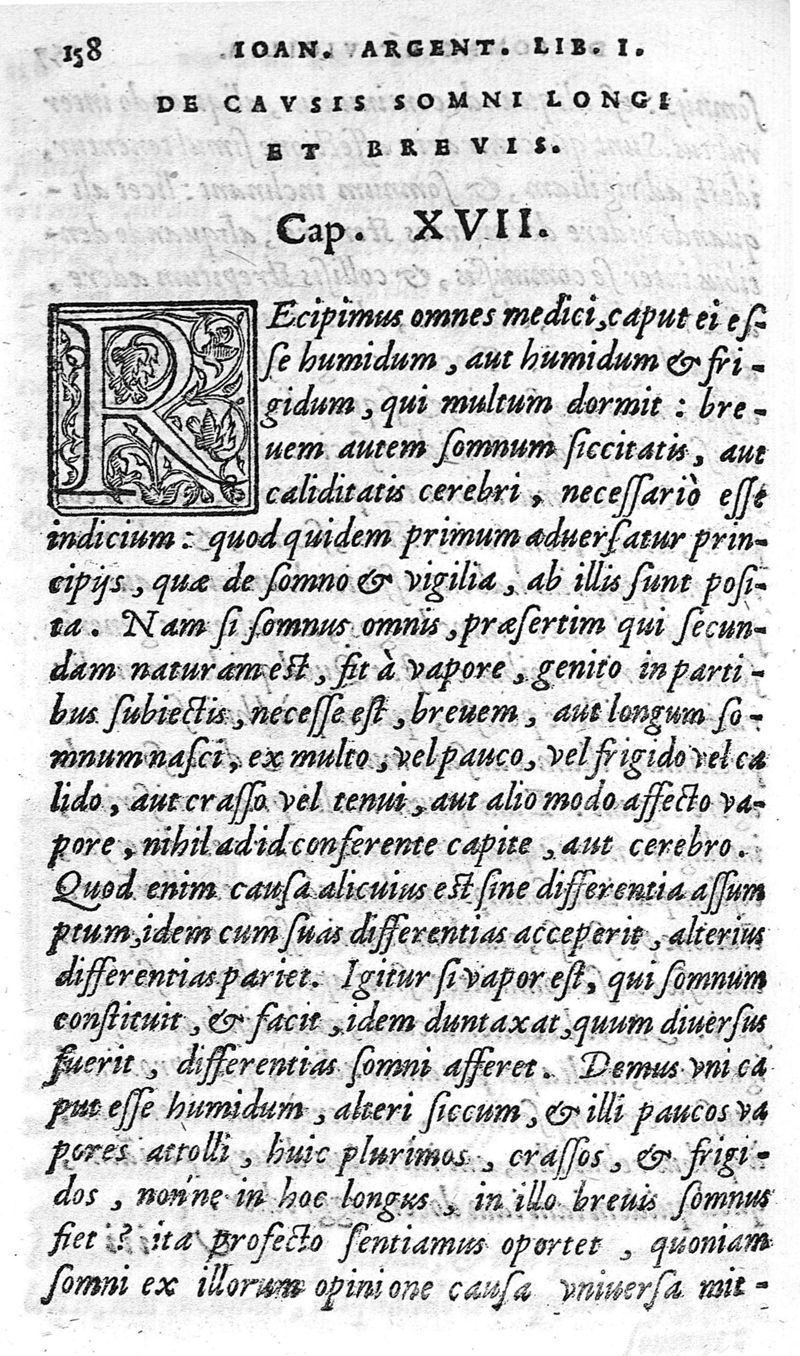 158 IOAN. ARGENT. LIB. I.
DE CAVSIS SOMNI LONGI
ET BREVIS.
Cap. XVII.
REcipimus omnes medici, caput ei es-
se humidum, aut humidum & fri-
gidum, qui multum dormit: bre-
uem autem somnum siccitatis, aut
caliditatis cerebri, necessariò esse
indicium: quod quidem primum aduersatur prin-
cipijs, quæ de somno & vigilia, ab illis sunt posi-
ta. Nam si somnus omnis, præsertim qui secun-
dam naturam est, fit à vapore, genito in parti-
bus subiectis, necesse est, breuem, aut longum so-
mnum nasci, ex multo, vel pauco, vel frigido vel ca
lido, aut crasso vel tenui, aut alio modo affecto va-
pore, nihil ad id conferente capite, aut cerebro.
Quod enim causa alicuius est sine differentia assum
ptum, idem cum suas differentias acceperit, alterius
differentias pariet. Igitur si vapor est, qui somnum
constituit, & facit, idem duntaxat, quum diuersus
fuerit, differentias somni afferet. Demus vni ca
put esse humidum, alteri siccum, & illi paucos va
pores attolli, huic plurimos, crassos, & frigi-
dos, nonne in hoc longus, in illo breuis somnus
fiet? ita profecto sentiamus oportet, quoniam
somni ex illorum opinione causa vniuersa mit-